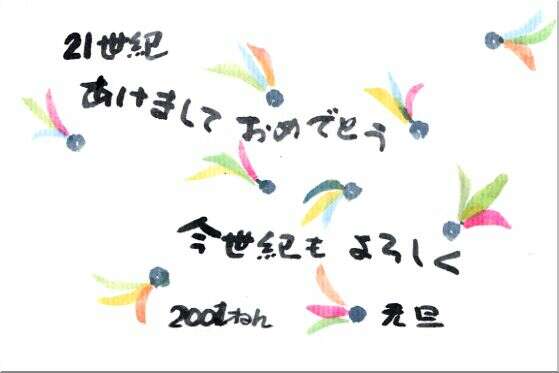 21世紀
あけまして おめでとう
今世紀も よろしく
2001ねん 元旦